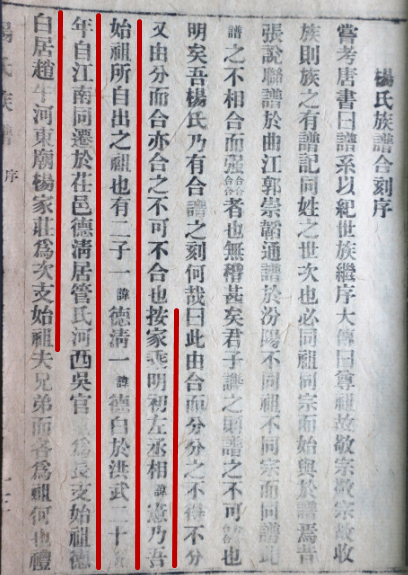 楊氏族譜合刻序
嘗考唐書曰譜系以紀世族繼序大傳曰尊祖故敬宗敬宗故收
族則族之有譜記同姓之世次也必同祖同宗而始與於譜焉昔
張說聯譜於曲江郭崇韜通譜於汾陽不同祖不同宗而同譜此
譜之不相合而强合者也無稽甚矣君子譏之則譜之不可合也
明矣吾楊氏乃有合譜之刻何哉曰此由合而分分之不得不分
又由分而合亦合之不可不合也按家乘明初左丞相諱憲乃吾
始祖所自出之祖也有二子一諱德清一諱德白於洪武二十
年自江南同遷於茌邑德清居管氏河西吳官為長支始祖德
白居趙牛河東廟楊家莊為次支始祖夫兄弟而各為祖何也禮
楊氏族譜 序